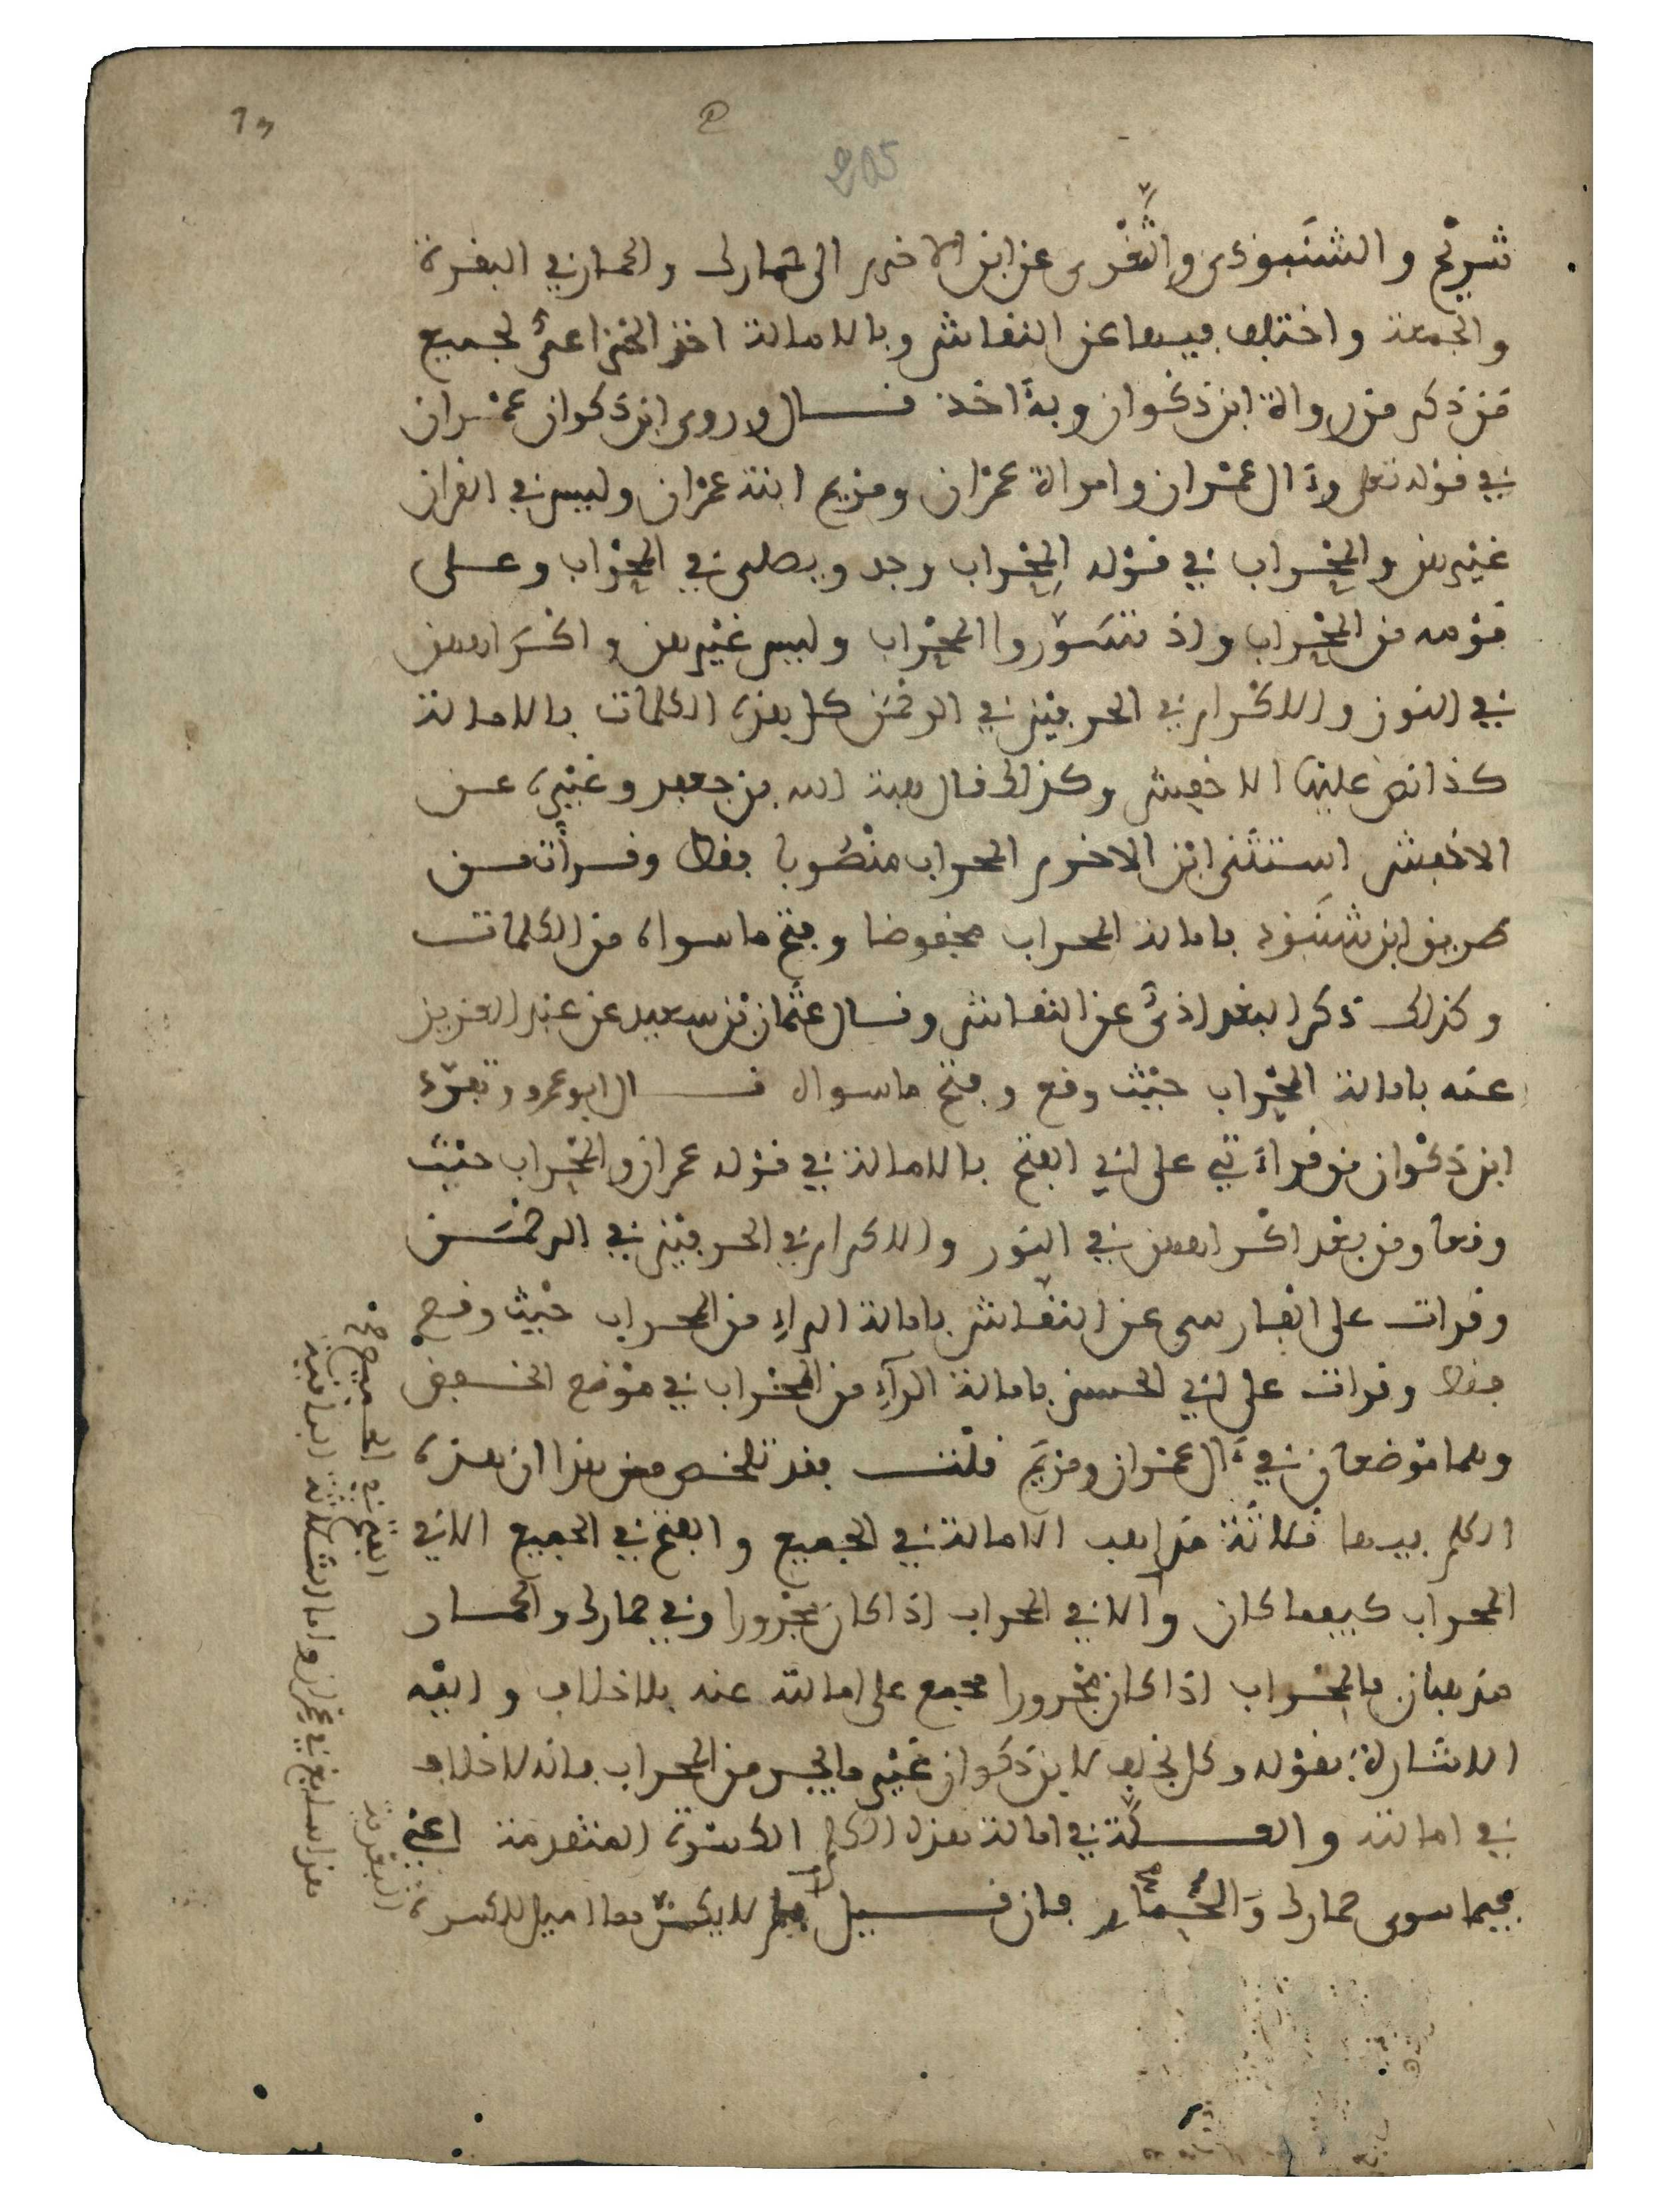 شريح والشنبوذي والثغري عن ابن الاخرم الى حمارك والحمار في البقرة
والجمعة واختلف فيهما عن النقاش وبالامالة اخذ الخزاعي لجميع
من ذكر من رواة ابن ذكوان وبه اخذ قال وروى ابن ذكوان عمران
في قوله تعلى وءال عمران وامراة عمران ومريم ابنة عمران وليس في القران
غيرهن والمحراب في قوله المحراب وجد ويصلي في المحراب وعلى
قومه من المحراب واذ تسوروا المحراب وليس غيرهن واكراههن
في النور والاكرام في الحرفين في الرحمن كل هذه الكلمات بالامالة
كذا نص عليها الاخفش وكذلك قال هبة الله بن جعفر وغيره عن
الاخفش استثنى ابن الاخرم المحراب منصوبا فقط وقرأت من
طريق ابن شنبوذ بامالة المحراب مخفوضا وفتح ما سواه من الكلمات
وكذلك ذكر البغداذي عن النقاش وقال عثمان بن سعيد عن عبد العزيز
عنه بامالة المحراب حيث وقع وفتح ما سواه قال ابو عمرو وتفرد
ابن ذكوان من قراءتي على ابي الفتح بالامالة في قوله عمران والمحراب حيث
وقعا ومن بعد اكراههن في النور والاكرام في الحرفين في الرحمن
وقرات على الفارسي عن النقاش بامالة الراء من المحراب حيث وقع
فقط وقرات على ابي الحسن بامالة الراء من المحراب في موضع الخفض
وهما موضعان في ءال عمران ومريم قلت فقد تلخص من هذا ان هذه
الكلم فيها ثلاثة مذاهب الامالة في الجميع والفتح في الجميع الا في
المحراب كيفما كان والا في المحراب اذا كان مجرورا وفي حمارك والحمار
مذهبان فالمحراب اذا كان مجرورا مجمع على امالته عنه بلا خلاف واليه
الاشارة بقوله وكل بخلف لابن ذكوان غير ما يجر من المحراب فانه لا خلاف
في امالته والعلة في امالة هذه الكلم الكسرة المتقدمة اعني
فيما سوى حمارك والحمار فان قيل لم لا يكن مما اميل للكسرة